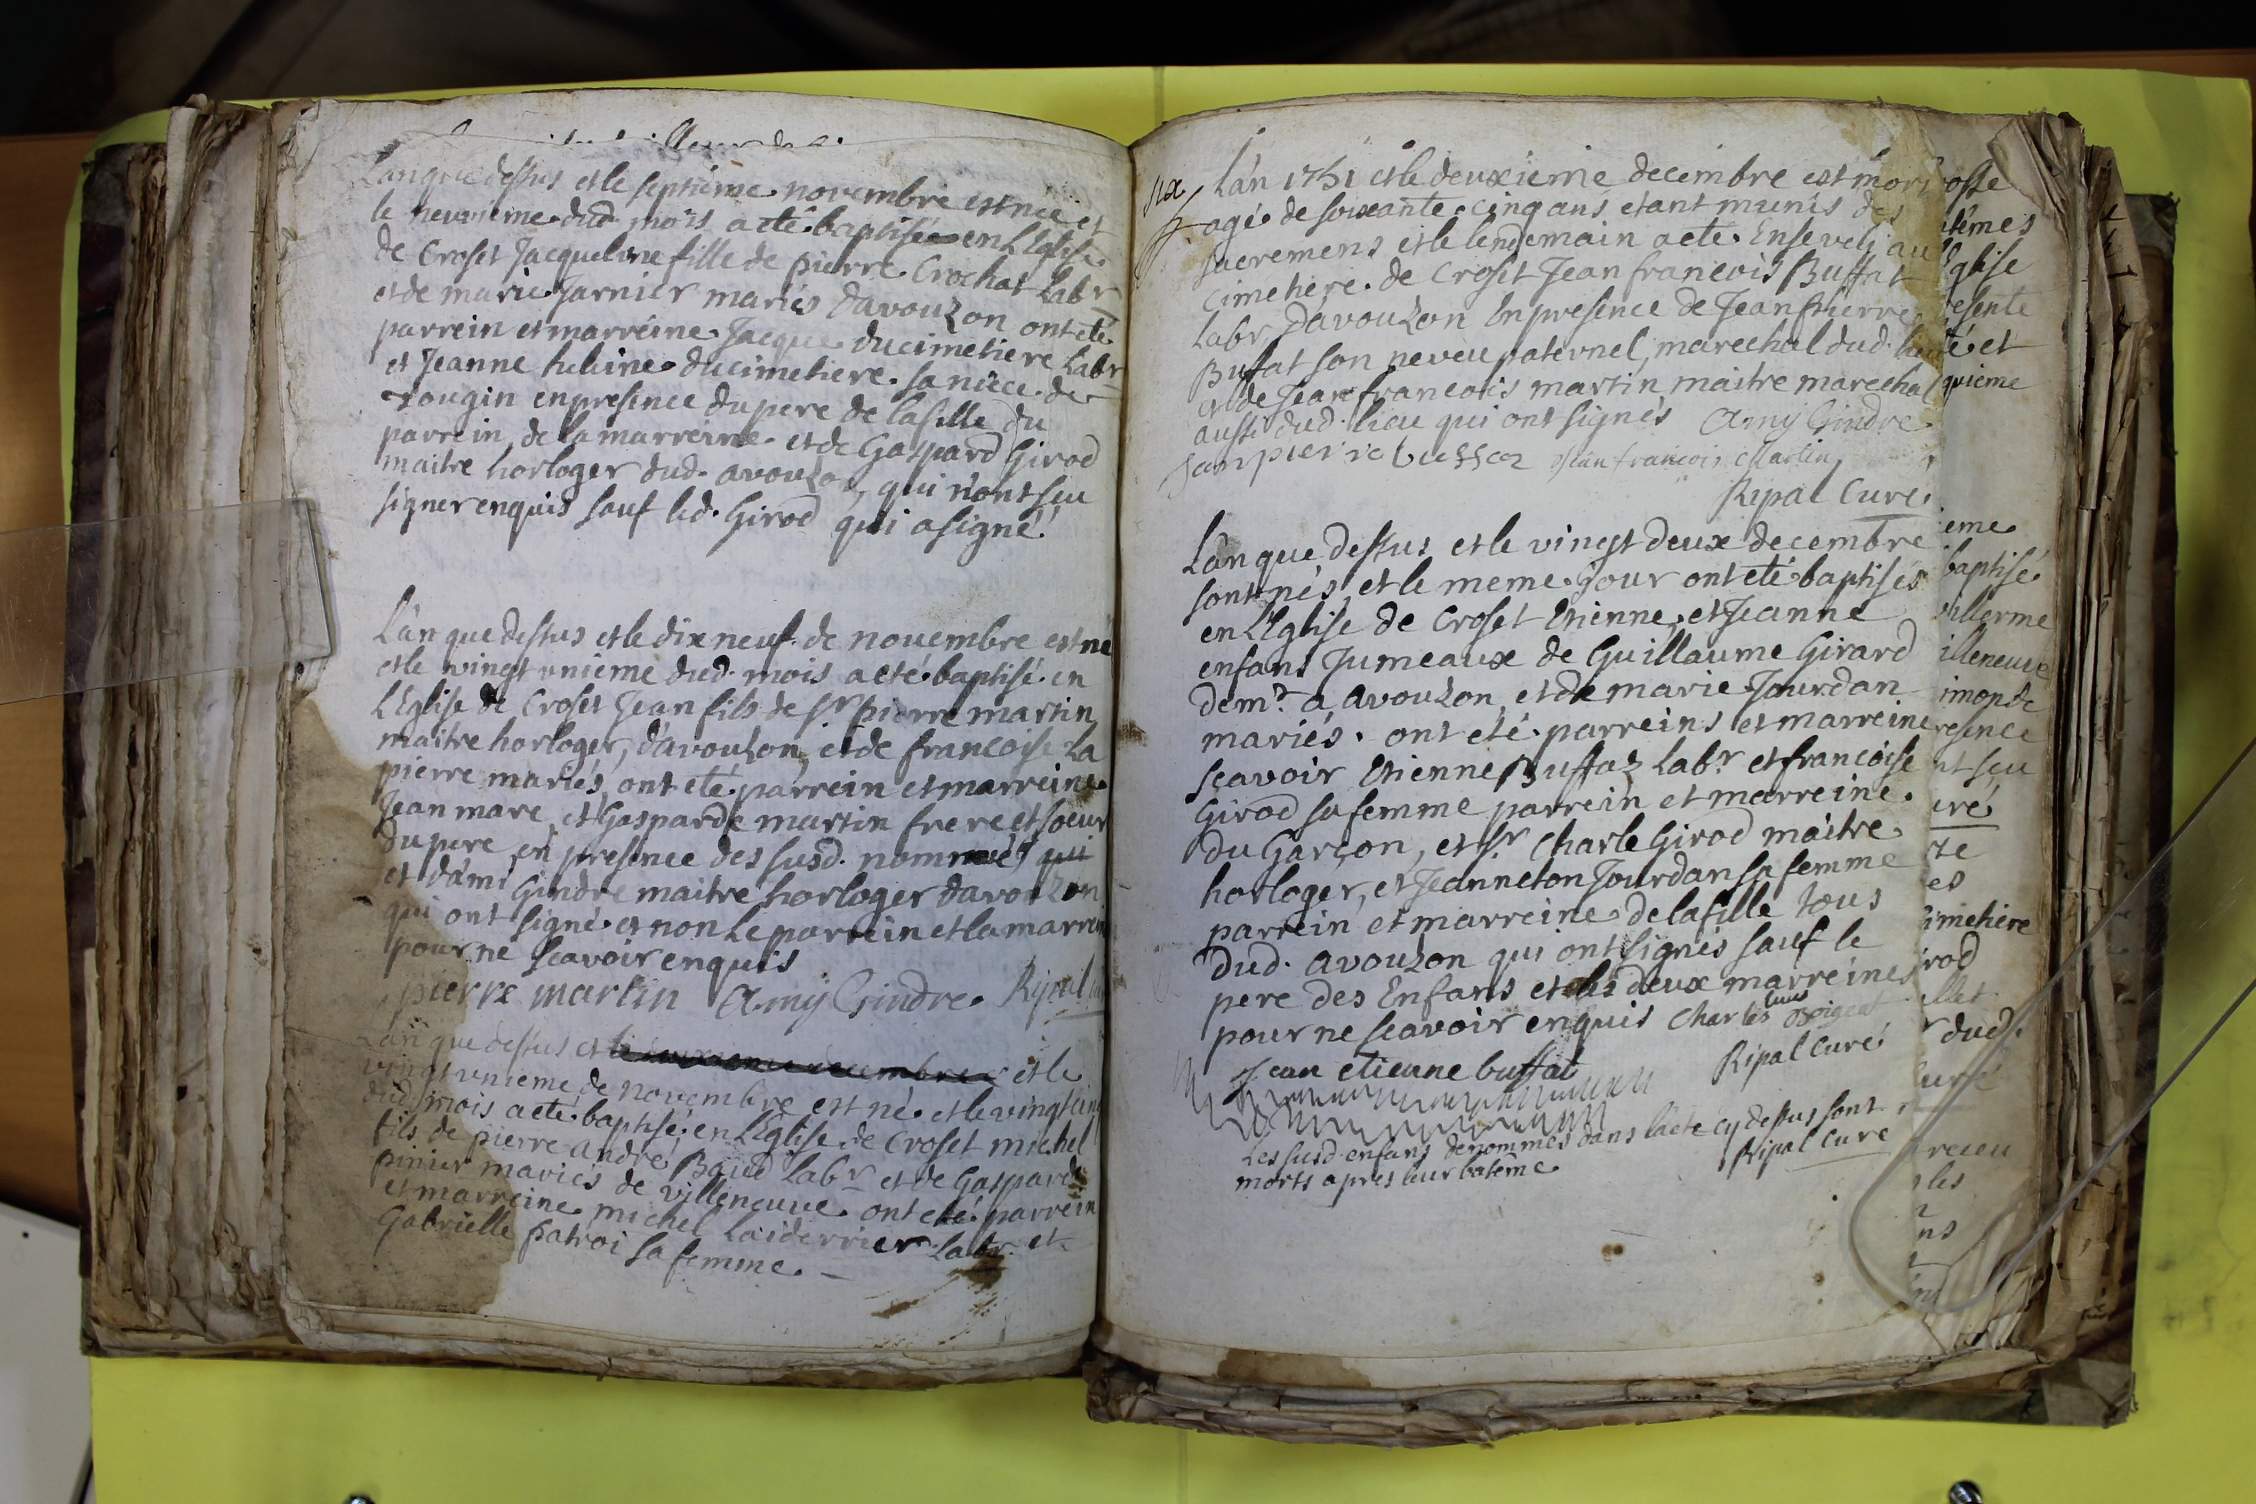 L'an que dessus et le septième novembre est née et
le neuvieme dud. mois a eté baptisée en L'Eglise
de Croset Jacqueline fille de pierre Crochat Labr
et de marie Jarnier mariés d'avouzon ont eté
parrein et marreine Jacque ducimetiere Labr
et Jeanne ducimetiere sa niece de
en presence du pere de la fille du
parrein, de la marreine et de Gaspard Girod
maitre horloger dud. avouzon, qui n'ont sçu
signer enquis sauf led. Girod qui a signé
L'an que dessus et le dix neuf de novembre est né
et le vingt unieme dud. mois a eté baptisé en
L'Eglise de Croset Jean fils de Sr. pierre martin
maitre horloger, d'avouzon, et de francoise La
pierre mariés, ont eté parrein et marreine
Jean marc et Gasparde martin frere et soeur
du pere en presence des susd. nommés qui
et d'ami Gindre maitre horloger d'avouzon
qui ont signé et non Le parrein et la marreine
pour ne scavoir enquis
pierre martin Amÿ Gindre Ripal
L'an que dessus et le et le
vingt unieme de novembre est né et le vingt cinq
dud. mois a eté baptisé en L'Eglise de Croset michel
fils de pierre andré Baud Labr et de Gasparde
pinier mariés de villeneuve ont eté parrein
et marreine michel Laiderrier Labr. et
Gabrielle patroi sa femme.
L'an 1751 et le deuxieme decembre est mort
six agé de soixante cinq ans etant munis des
sacremens et le lendemain a eté Enseveli au
cimetiere de Croset Jean francois Buffat
Labr d'avouzon En presence de Jean pierre
Buffat son neveu paternel, marechal dud. lieu
et de Jean francois martin maitre marechal
aussi dud. lieu qui ont signés Amÿ Gindre
Jean francois Martin
Ripal Curé
L'an que dessus et le vingt deux decembre
sont nés et le meme jour ont eté baptisés
en L'Eglise de Croset Etienne et Jeanne
enfans Jumeaux de Guillaume Girard
demt. a avouzon, et de marie Jourdan
mariés. ont eté parreins et marreine
sçavoir Etienne Buffaz Labr. et francoise
Girod sa femme parrein et marreine
du Garçon, et Sr. Charle Girod maitre
horloger, et Jeanneton Jourdan sa femme
parrein et marreine de la fille tous
dud. avouzon qui ont signés sauf le
pere des Enfans et les deux marreines
pour ne scavoir enquis Charles
Jean etienne buffat Ripal Curé
Les susd. enfans denommés dans l'acte cy dessus sont
morts apres leur bateme Ripal Curé